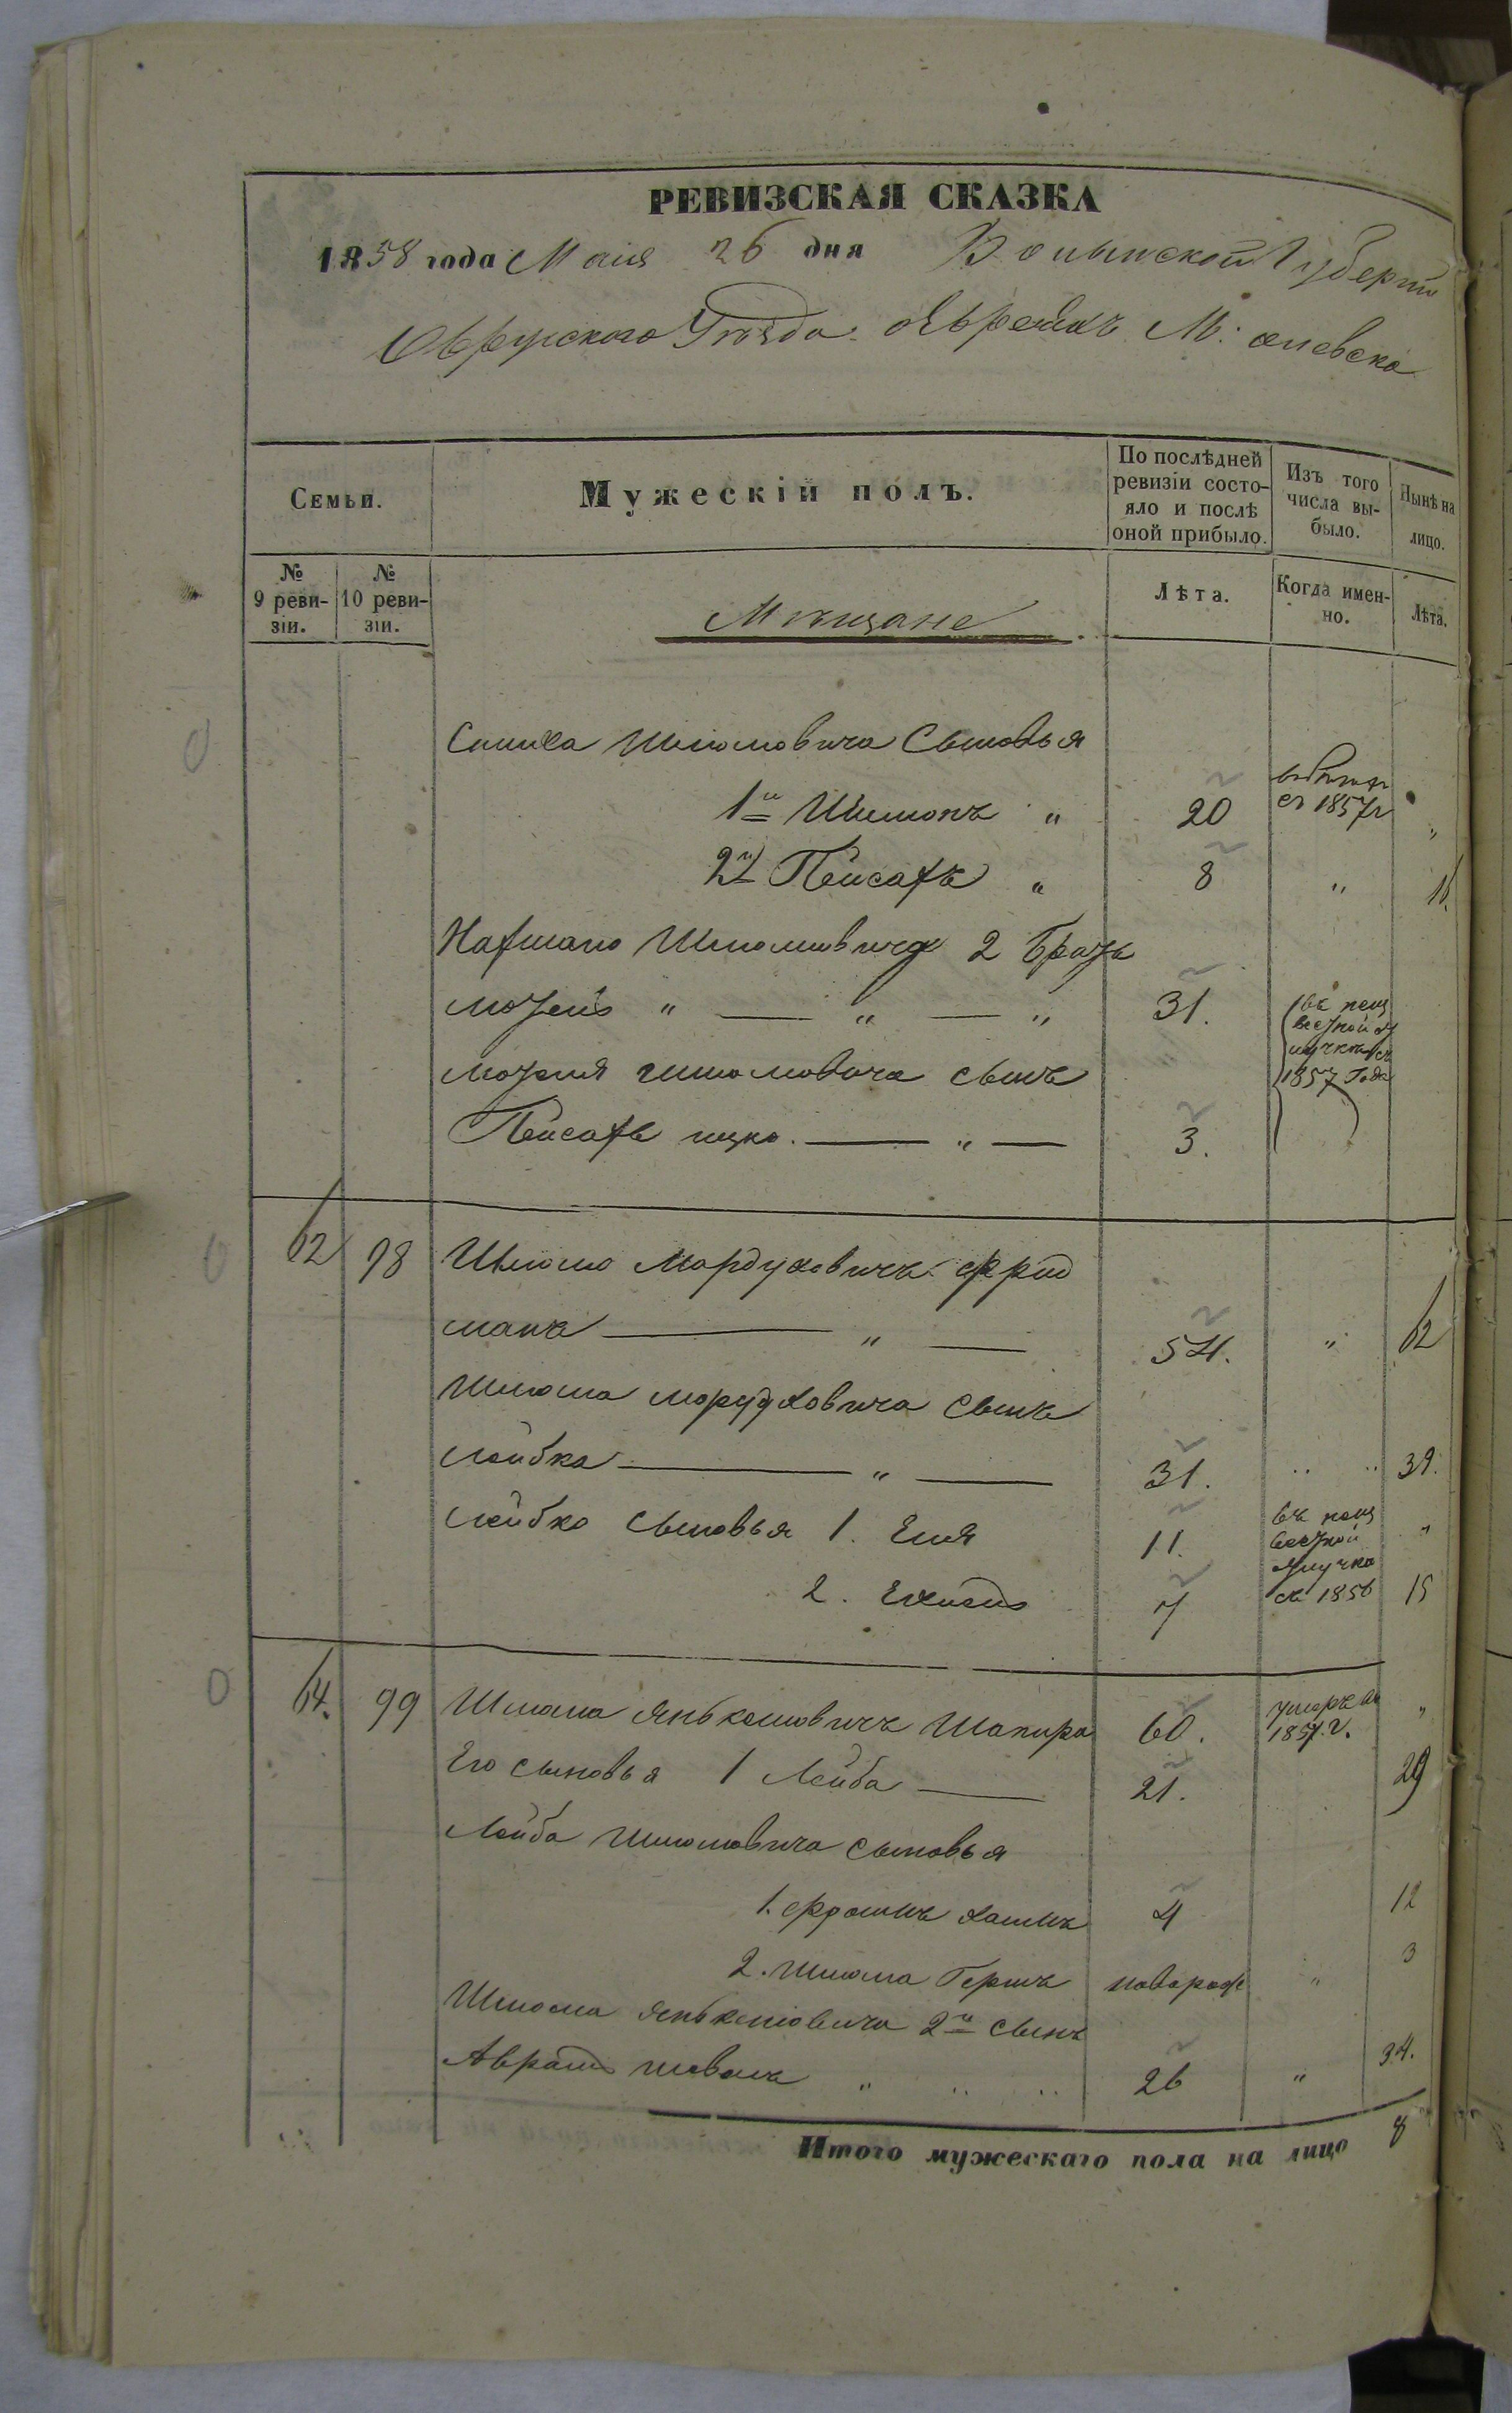 РЕВИЗСКАЯ СКАЗКА
1858 года Маія 26 дня Волынской Губерніи
Овручского Уѣзда Евреихъ М: олевска
Семьи.
Мужескій полъ.
По послѣдней ревизіи состо-
яло и послѣ
оной прибыло.
Изъ того
числа вы-
было.
Нынѣ на
лицо.
№
9 реви-
зіи.
№
10 реви-
зіи.
Мещане
Лѣта.
Когда имен-
но.
Лѣта.
Шлиомовича Сыновья
1й Шлиомъ " 20 съ 1857г "
2й Пейсахъ " 8 " 16
Шлиомовича 2 братъ
мозей " — " — " 31. въ неиз
вестной от
лучкѣ съ
1857 Года
мозея шлиомовича сынъ
Пейсахъ ицко. — " — 3.
62 98 Шлиома Мордуховичъ Фрид
манъ — " — 54. " 62
Шлиома мордуховича Сынъ
Лейбка — " — 31. " " 39.
Лейбко Сыновья 1. Еля 11. въ неиз
вестной
отлучке
съ 1856 "
2. 7 15
64. 99 Шлиома Янькелиовичъ Шапира 60. умеръ въ
1857.г. "
Его сыновья 1 Лейба — 21. 29
Лейба Шлиомовича сыновья
1. Хаимъ 4 12
2. Шлиома Гершъ новорож " 3
Шлиома Янькелиовича 2й сынъ
Аврамъ " " " 26 " 34.
Итого мужескаго пола на лицо 8